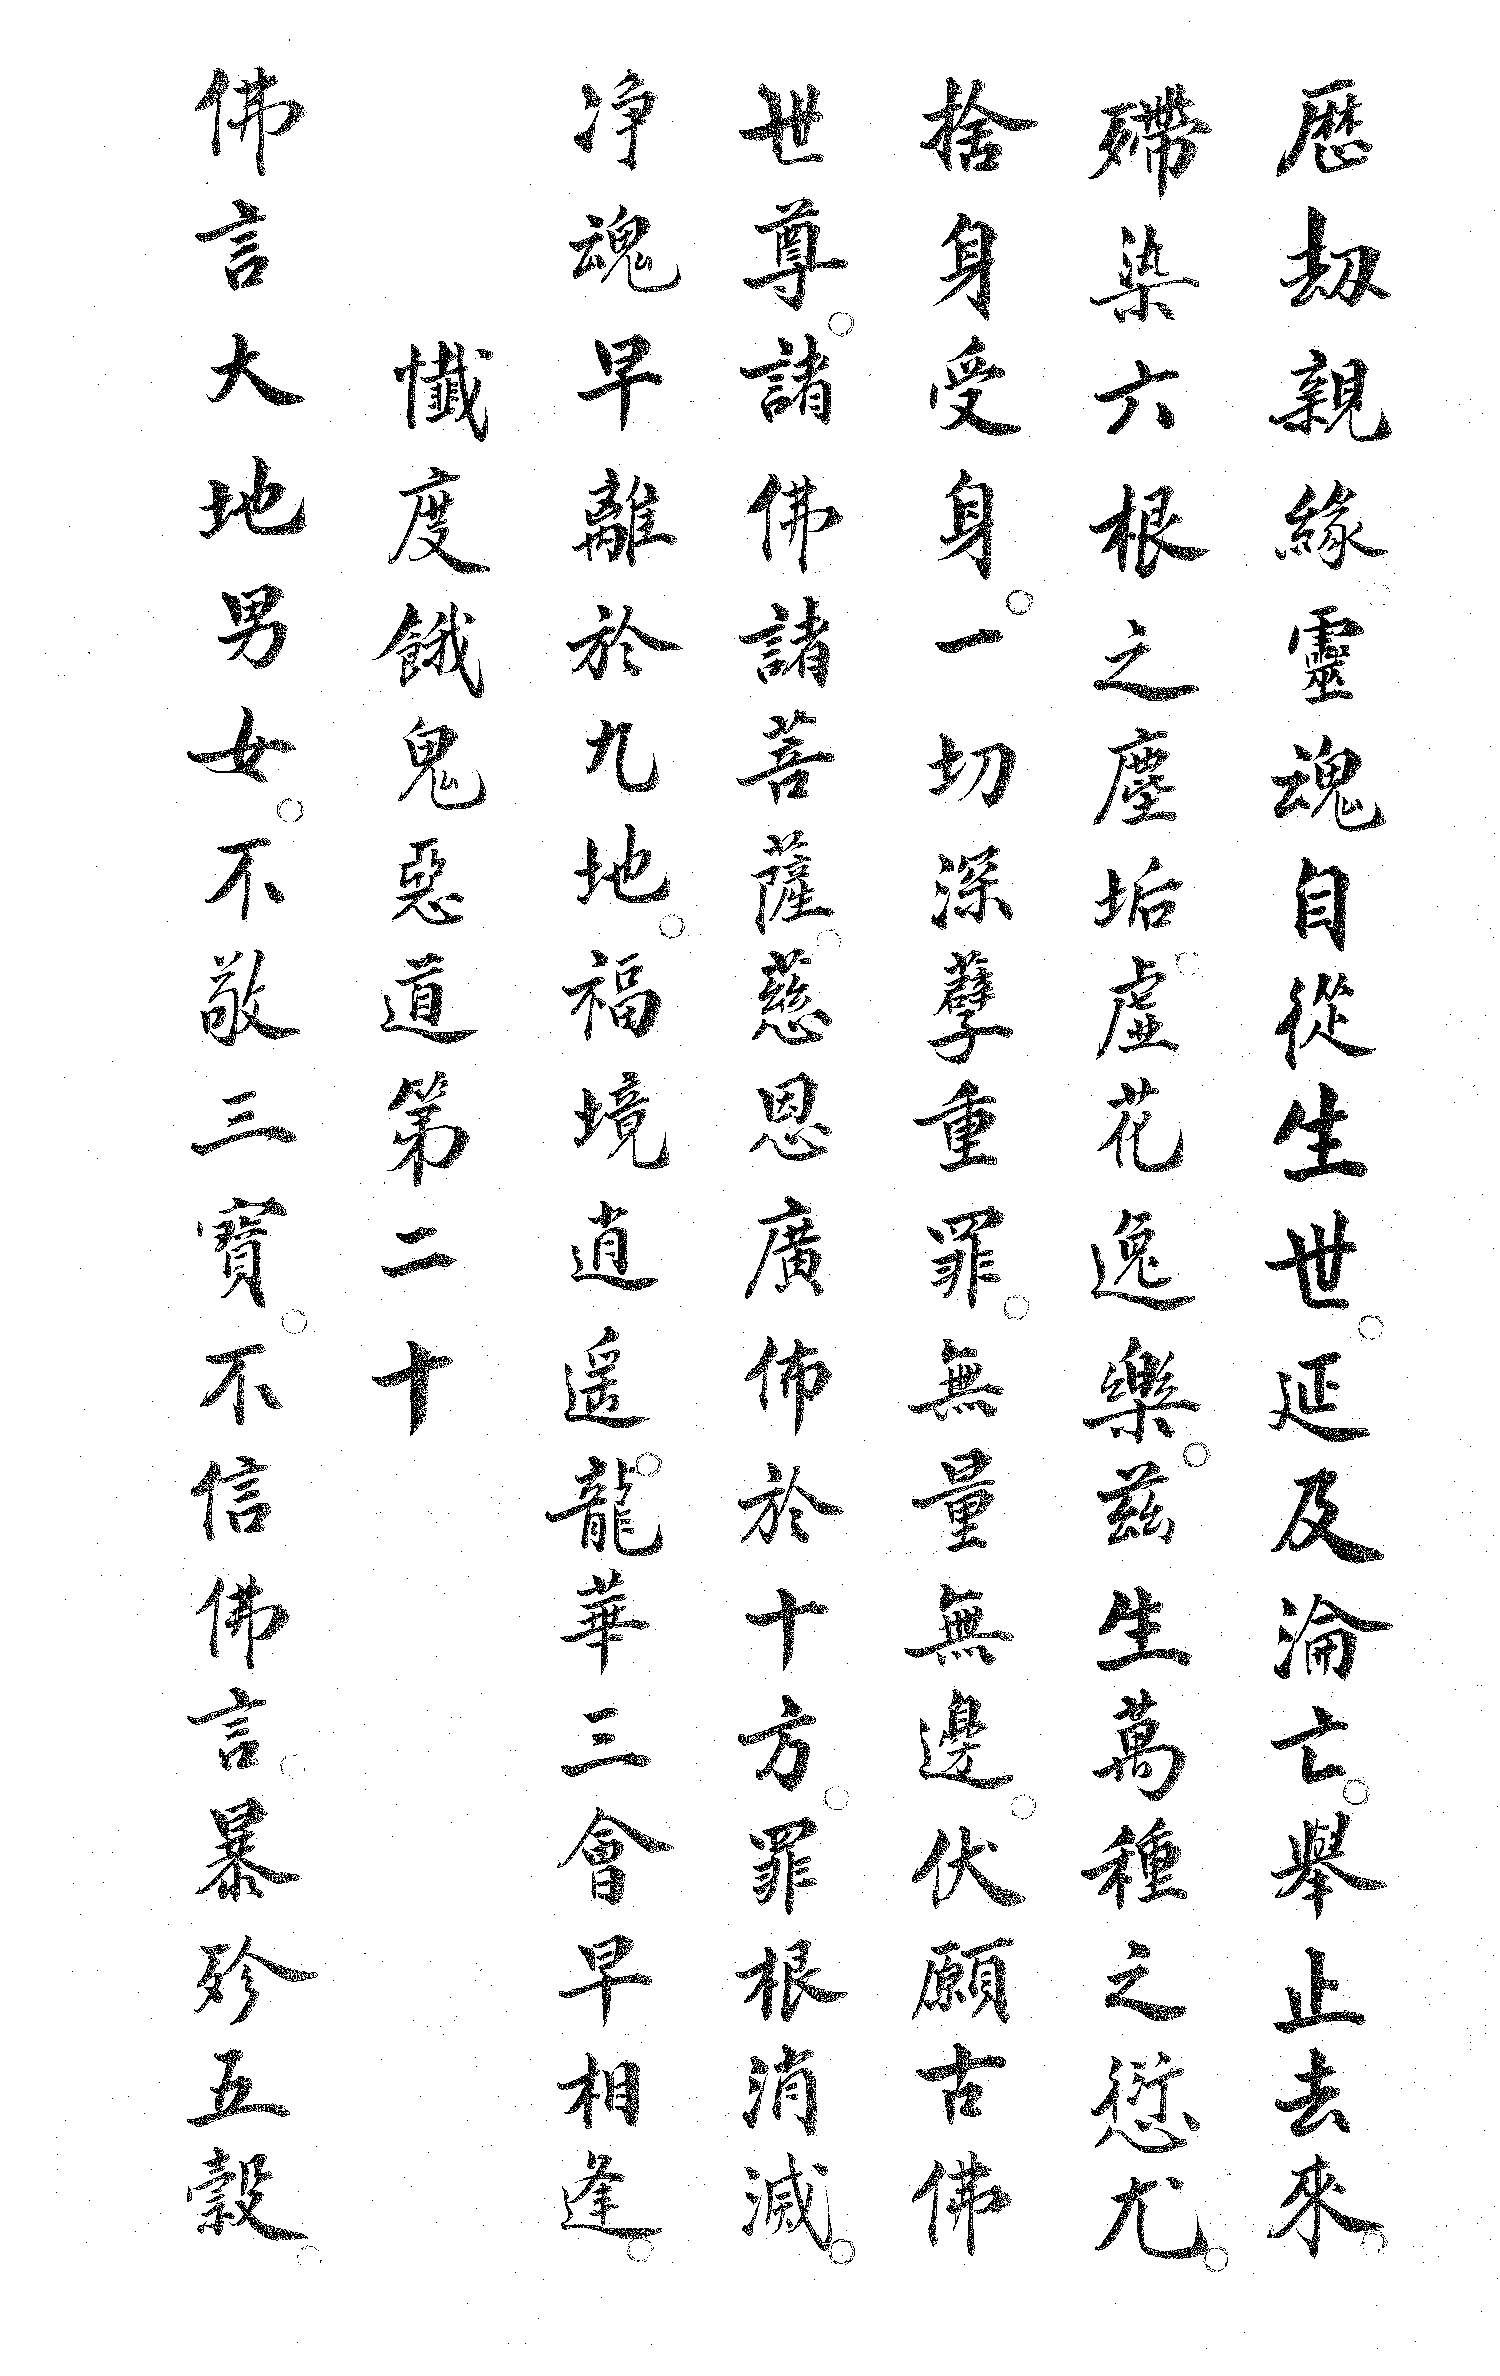 歷劫親緣。靈魂自從生世。延及淪亡。舉止去來。
殢染六根之塵垢。虛花逸樂。茲生萬種之愆尤。
捨身受身。一切深孽重罪。無量無邊。伏願古佛
世尊。諸佛諸菩薩。慈恩廣佈於十方。罪根消滅。
净魂早離於九地。福境逍遥。龍華三會早相逢。
懺度餓鬼惡道第二十
佛言大地男女。不敬三寶。不信佛言。暴殄五穀。